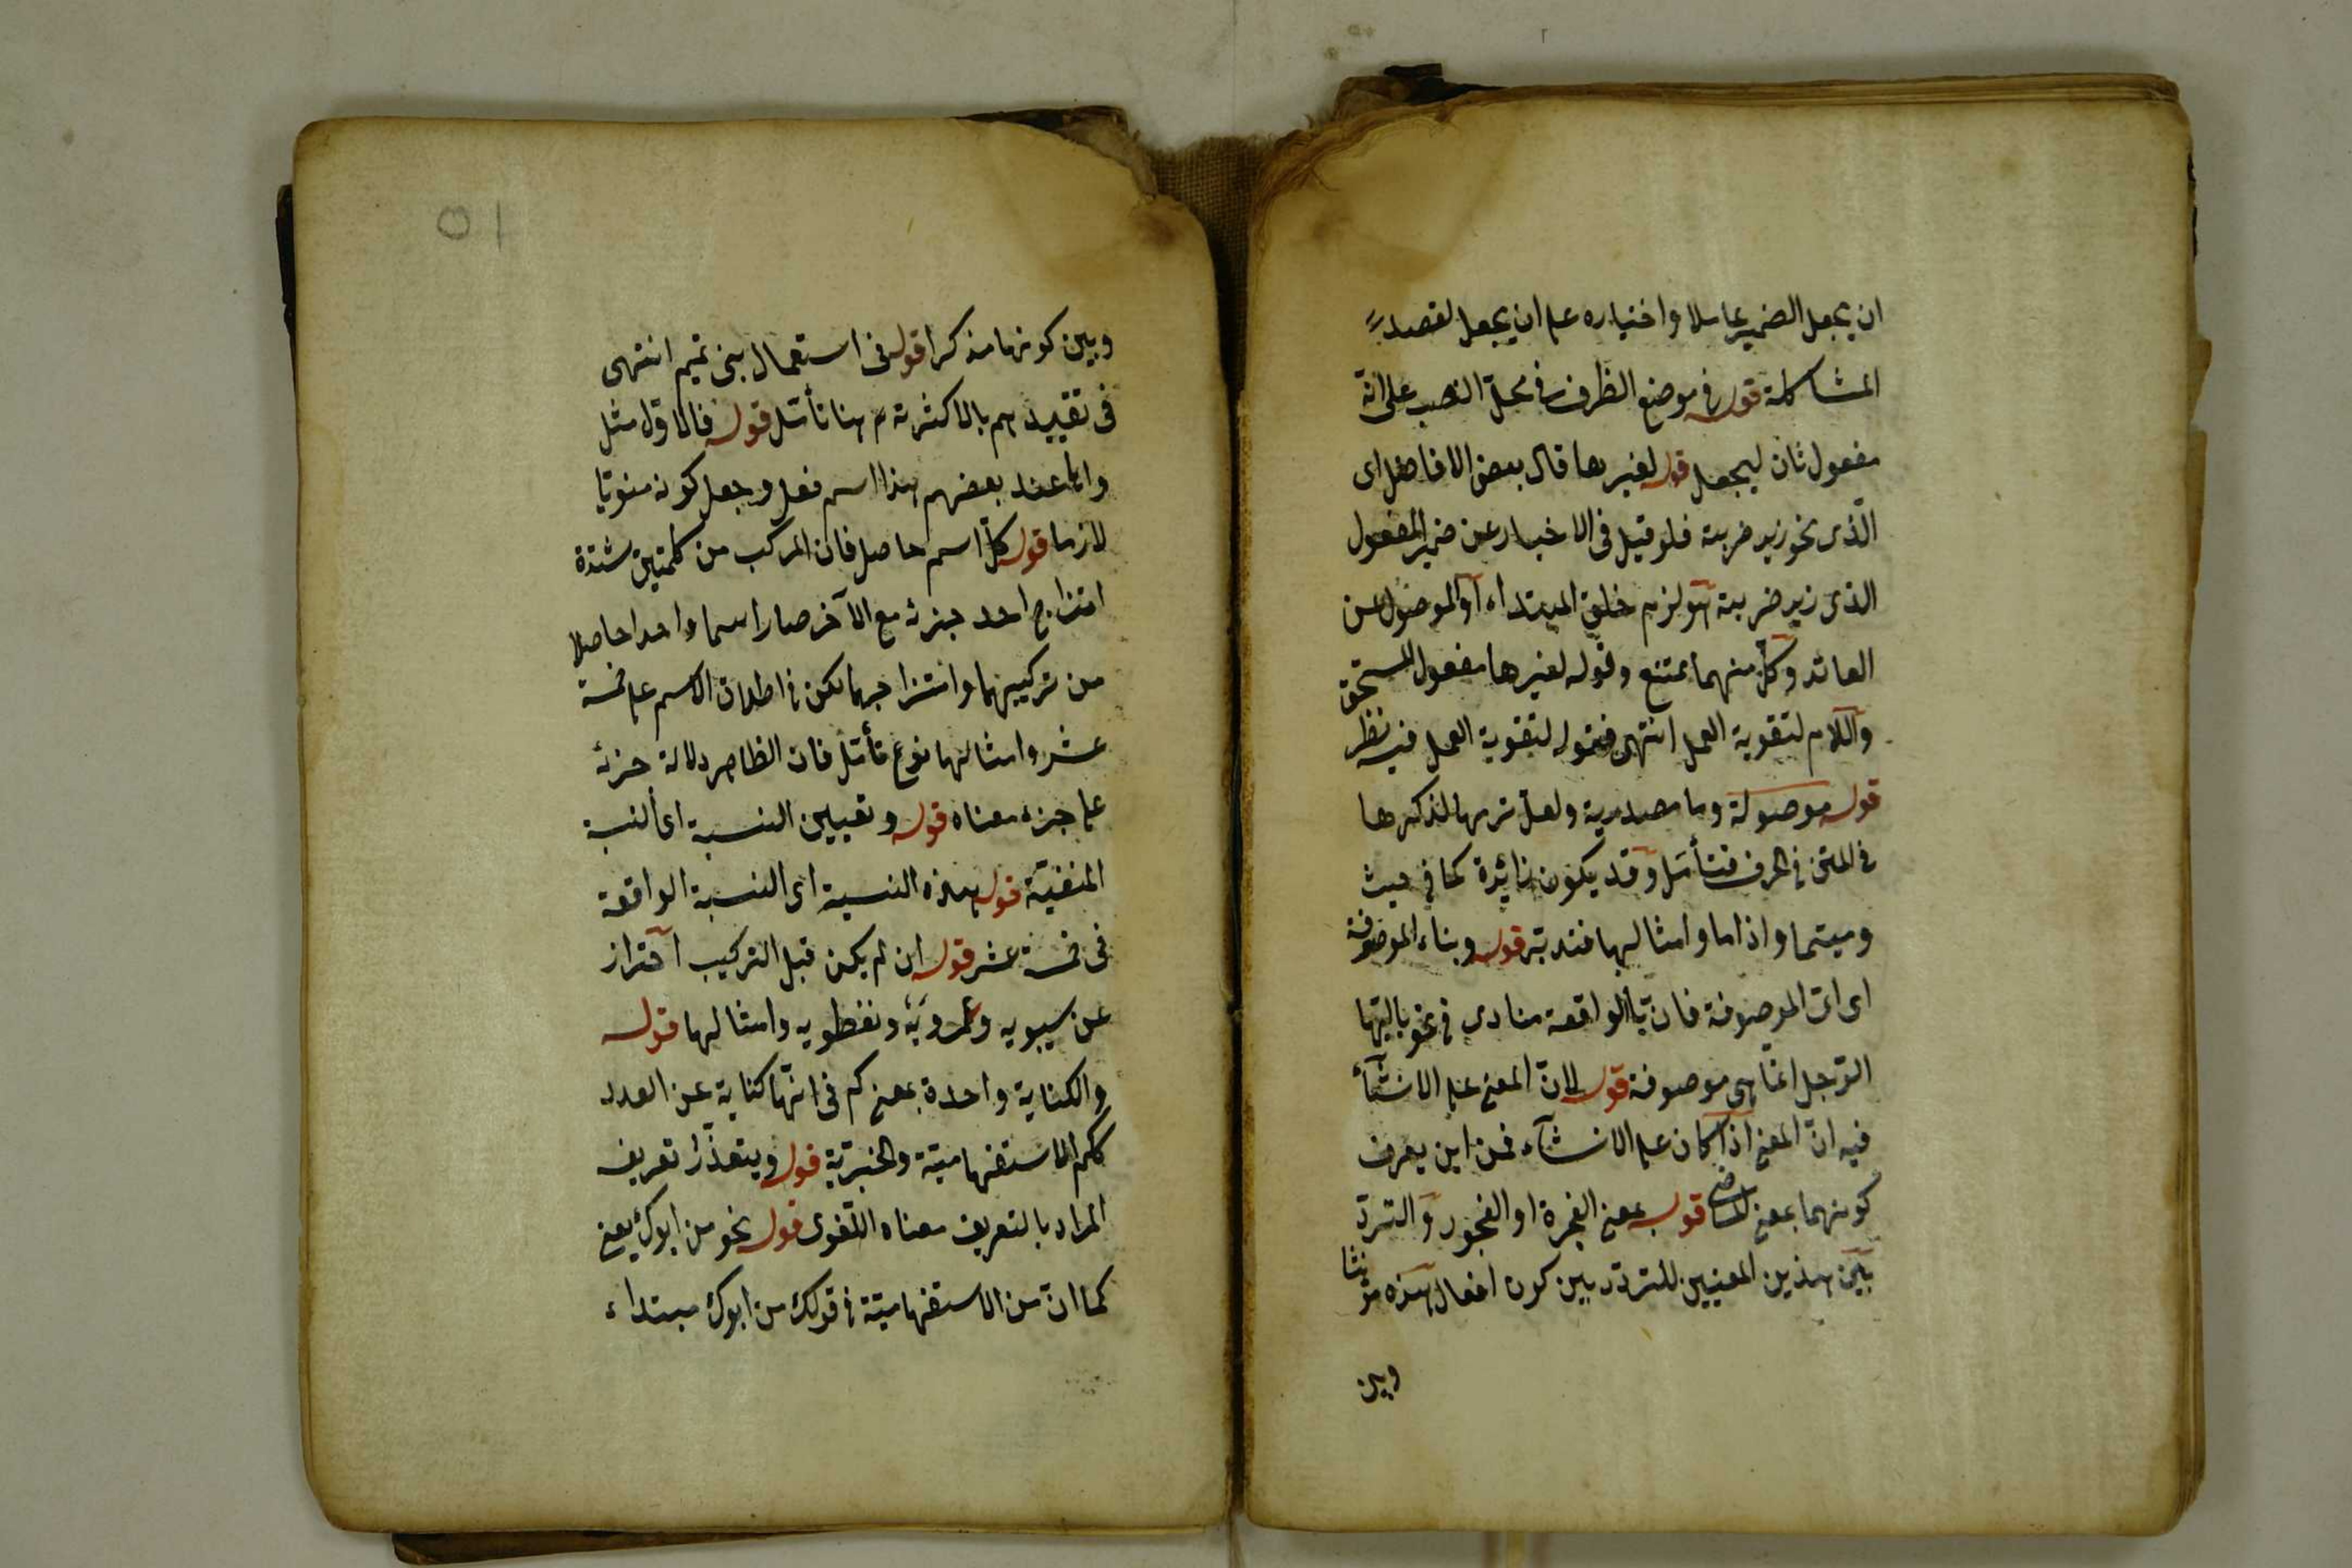 ان يجعل الضمير عاملا واختياره على ان يجعل لقصد
المشاكلة قوله في موضع الظرف في محل النصب على انّه
مفعول ثان ليجعل قوله لغيرها قال بعض الافاضل اى
الّذى نحو زيد ضربته فلو قيل فى الاخبار عن ضمير المفعول
الذى زيد ضربته هو لزم خلو المبتداء او الموصول عن
العائد وكلّ منهما ممتنع وقوله لغيرها مفعول المستحق
واللام لتقوية العمل انتهى فقوله لتقوية العمل فيه نظر
قوله موصولة وما مصدرية ولعلّ تركها لذكرها
في المتن في الحرف فتأمّل وقد يكون زائدة كما في حيث
وحيثما واذاما وامثالها فتدبّر قوله وبناء الموصوفة
اى اىّ الموصوفة فان ايّا الواقعة منادى في نحو ياايّها
الرّجل انّما هى موصوفة قوله لانّ المعنى على الانشاء
فيه انّ المعنى اذا كان على الانشاء فمن اين يعرف
كونهما بمعنى الماضى قوله بمعنى الفجرة او الفجور والتردّد
بين هذين المعنيين للتردّد بين كون افعال هذه مؤنثا
وبين
٥١
وبين كونها مذكرا قوله فى استعمال بنى تميم انتهى
فى تقييدهم بالاكثرية ههنا تأمّل قوله فالاوّل مثل
وامّا عند بعضهم هذا اسم فعل وجعل كونه منويّا
لازما قوله كلّ اسم حاصل فان المركب من كلمتين شدّة
امتزاج احد جزئه مع الآخر صارا اسما واحدا حاصلا
من تركيبهما وامتزاجهما لكن في اطلاق الاسم على خمسة
عشر وامثالها نوع تأمّل فان الظاهر دلالة جزئه
على جزء معناه قوله وتعيين النسبة اى النسبة
المنفيّة قوله هذه النسبة اى النسبة الواقعة
فى خمسة عشر قوله ان لم يكن قبل التركيب احتراز
عن سيبويه وعمرويه ونفطويه وامثالها قوله
والكناية واحدة بمعنى كم فى انّها كناية عن العدد
ككم الاستفهاميّة والخبريّة قوله ويتعذّر تعريف
المراد بالتعريف معناه اللّغوى قوله نحو من ابوك يعنى
كما انّ من الاستفهاميّة في قولك من ابوك مبتداء